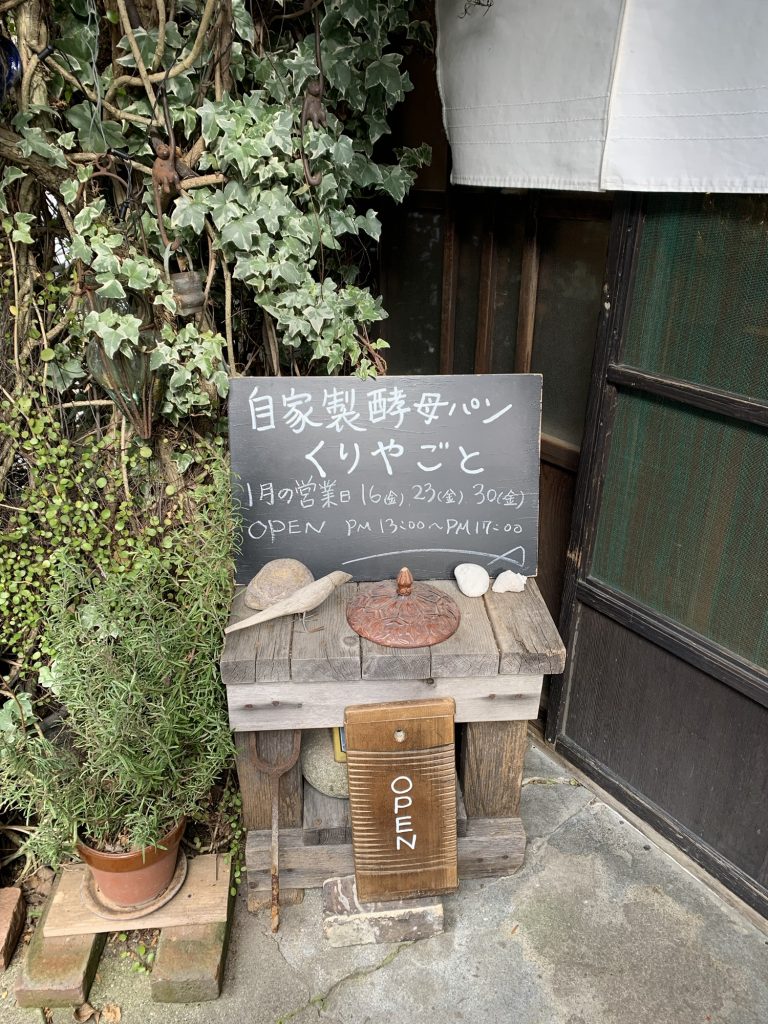 自家製酵母パン
くりやごと
1月の営業日 16(金), 23(金), 30(金)
OPEN PM 13:00〜PM 17:00
OPEN